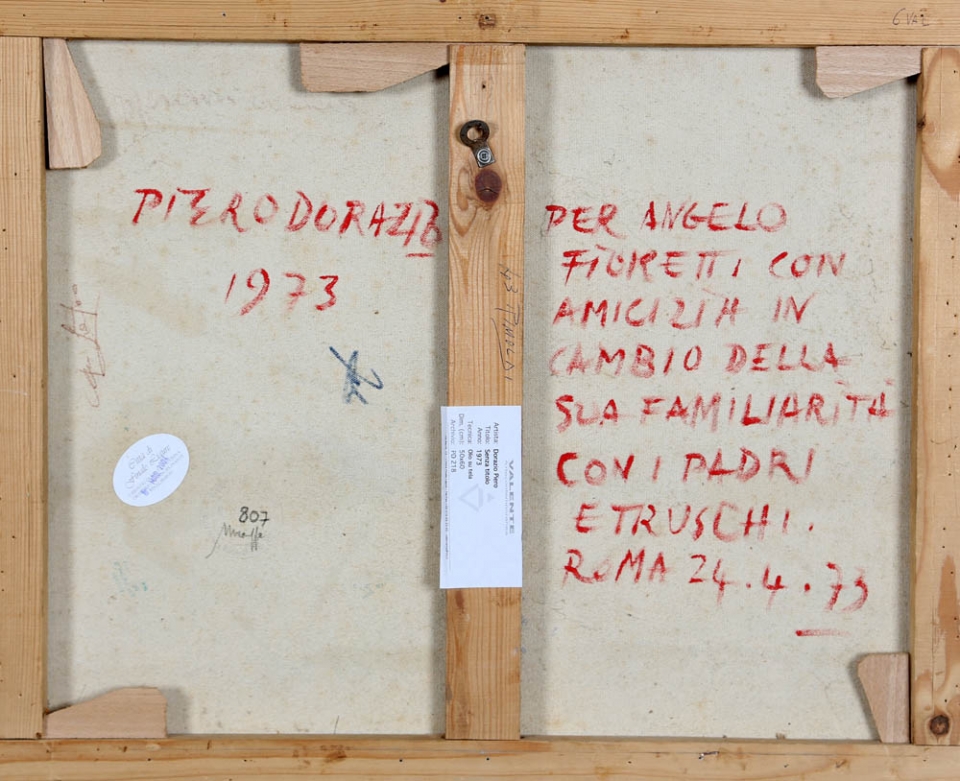 6 VAL
PIERO DORAZIO
1973
PER ANGELO
FIORETTI CON
AMICIZIA IN
CAMBIO DELLA
SUA FAMILIARITÀ
CON I PADRI
ETRUSCHI.
ROMA 24.4.73
VALENTE
Artista: Dorazio Piero
Titolo: Senza titolo
Anno: 1973
Tecnica: Olio su tela
Dim. (cm): 50x60
Archivio: YO 218
807